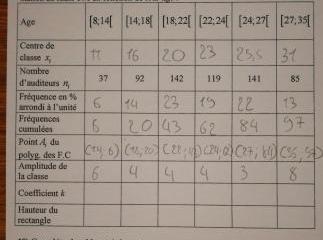 Age [8;14[ [14;18[ [18;22[ [22;24[ [24;27[ [27;35[
Centre de
classe xᵢ 11 16 20 23 25,5 31
Nombre
d'auditeurs nᵢ 37 92 142 119 141 85
Fréquence en %
arrondi à l'unité 6 14 23 19 22 13
Fréquences
cumulées 6 20 43 62 84 97
Point Aᵢ du
polyg. des F.C (14,6)
Amplitude de
la classe 6 4 4 4 3 8
Coefficient k
Hauteur du
rectangle